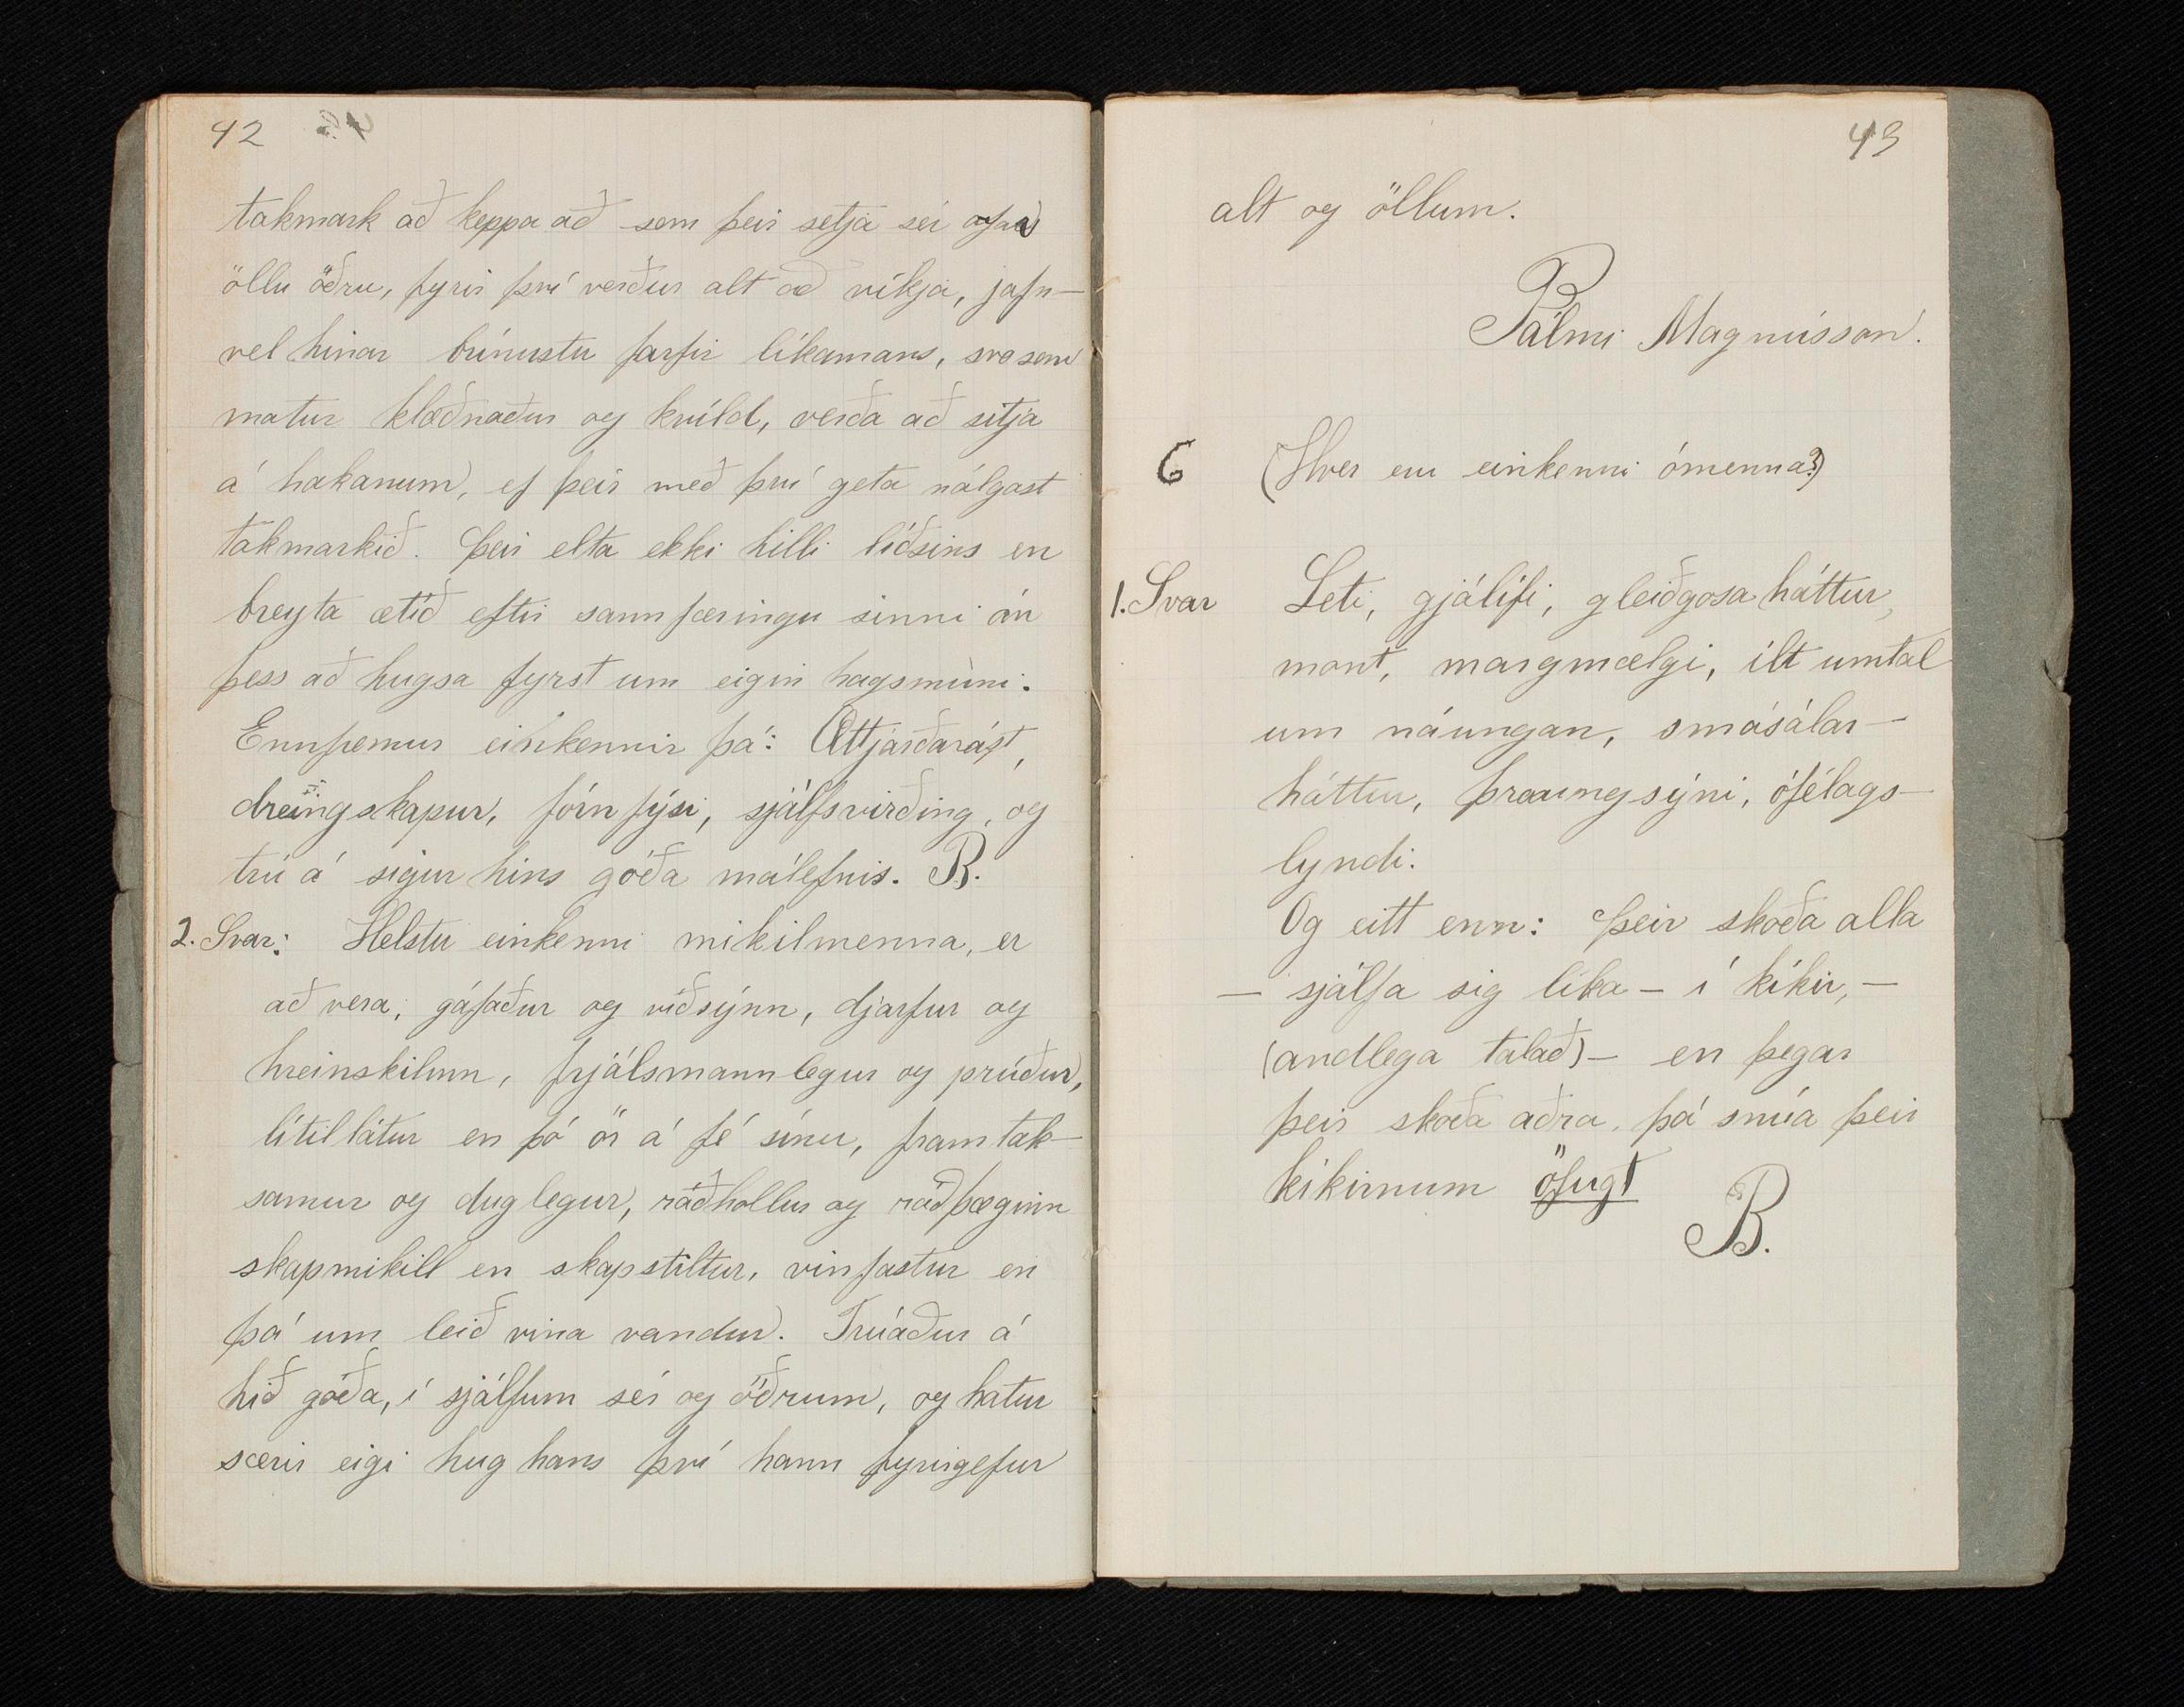 42
takmark að keppa að sem þeir setja sér ofar
öllu öðru, fyrir því verður alt að víkja, jafn-
vel hinar brínustu þarfir líkamans, svo sem
matur klæðnaður og kvíld, verða að sitja
á hakanum, ef þeir með því geta nálgast
takmarkið. Þeir elta ekki hilli líðsins en
breyta ætíð eftir sannfæringu sinni án
þess að hugsa fyrst um eigin hagsmuni.
Ennfremur einkennir þá: Ættjarðarást,
dreingskapur, fórnfýsi, sjálfsvirðing, og
trú á sigur hins góða málefnis. B.
2. Svar: Helstu einkenni mikilmenna, er
að vera, gáfaður og víðsýnn, djarfur og
hreinskilinn, frjálsmannlegur og prúður,
lítillátur en þó ör á fé sínu, framtak-
samur og duglegur, ráðhollur og ráðþæginn
skapmikill en skapstiltur, vinfastur en
þá um leið vina vandur. Trúaður á
hið góða, í sjálfum sér og öðrum, og hatur
særir eigi hug hans því hann fyrirgefur
43
alt og öllum.
Pálmi Magnússon.
6 (Hver eru einkenni ómenna?)
1. Svar Leti, gjálífi, gleiðgosa háttur,
mont, margmælgi, ilt umtal
um náungan, smásálar-
háttur, þraungsýni, ófélags-
lyndi.
Og eitt enn: Þeir skoða alla
- sjálfa sig líka - í kíkir, -
(andlega talað) - en þegar
þeir skoða aðra, þá snúa þeir
kíkirnum öfugt
B.